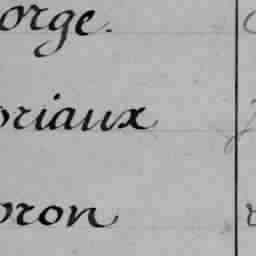 orge.
oriaux
oron